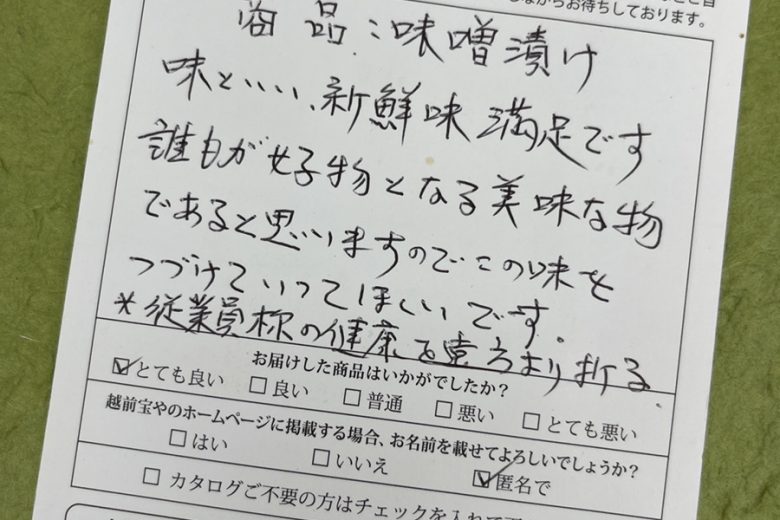 しながらお待ちしております。
商品：味噌漬け
味といい、新鮮味満足です
誰もが好物となる美味な物
であると思いますのでこの味を
つづけていってほしいです。
*従業員様の健康を遠方より祈る。
お届けした商品はいかがでしたか?
とても良い 良い 普通 悪い とても悪い
越前宝やのホームページに掲載する場合、お名前を載せてよろしいでしょうか?
はい いいえ 匿名で
カタログご不要の方はチェックを入れて